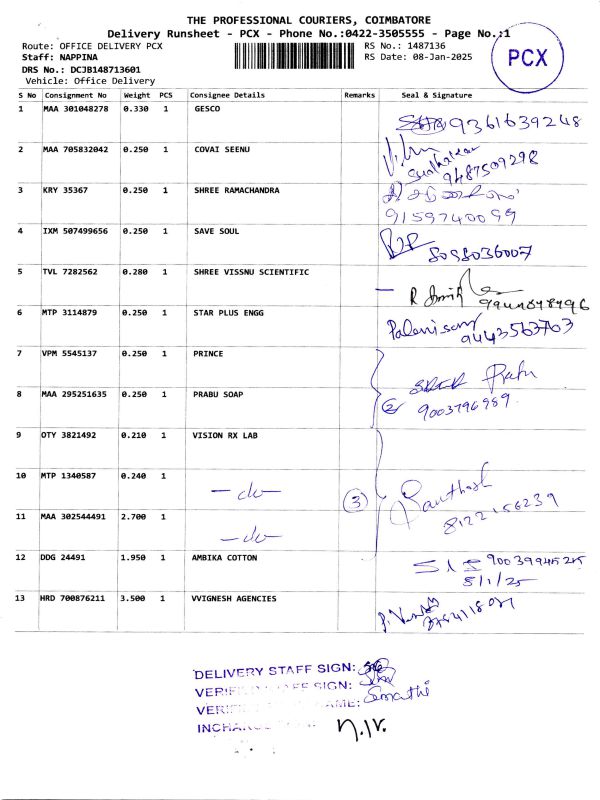 THE PROFESSIONAL COURIERS, COIMBATORE
Delivery Runsheet - PCX - Phone No.:0422-3505555 - Page No.:1
Route: OFFICE DELIVERY PCX
RS No.: 1487136
Staff: NAPPINA
RS Date: 08-Jan-2025
DRS No.: DCJB148713601
Vehicle: Office Delivery
PCX
S No Consignment No Weight PCS Consignee Details Remarks Seal & Signature
1 MAA 301048278 0.330 1 GESCO 9361639248
2 MAA 705832042 0.250 1 COVAI SEENU
9487509298
3 KRY 35367 0.250 1 SHREE RAMACHANDRA
9159740099
4 IXM 507499656 0.250 1 SAVE SOUL
8098036007
5 TVL 7282562 0.280 1 SHREE VISSNU SCIENTIFIC
6 MTP 3114879 0.250 1 STAR PLUS ENGG Palanisamy
9443563703
7 VPM 5545137 0.250 1 PRINCE
8 MAA 295251635 0.250 1 PRABU SOAP Prabu
2 9003796989
9 OTY 3821492 0.210 1 VISION RX LAB
10 MTP 1340587 0.240 1 -do- 3 Santhosh
8122156239
11 MAA 302544491 2.700 1 -do-
12 DDG 24491 1.950 1 AMBIKA COTTON
8/1/25
13 HRD 700876211 3.500 1 VVIGNESH AGENCIES
DELIVERY STAFF SIGN:
SIGN:
NAME: Sumathi
N.K.